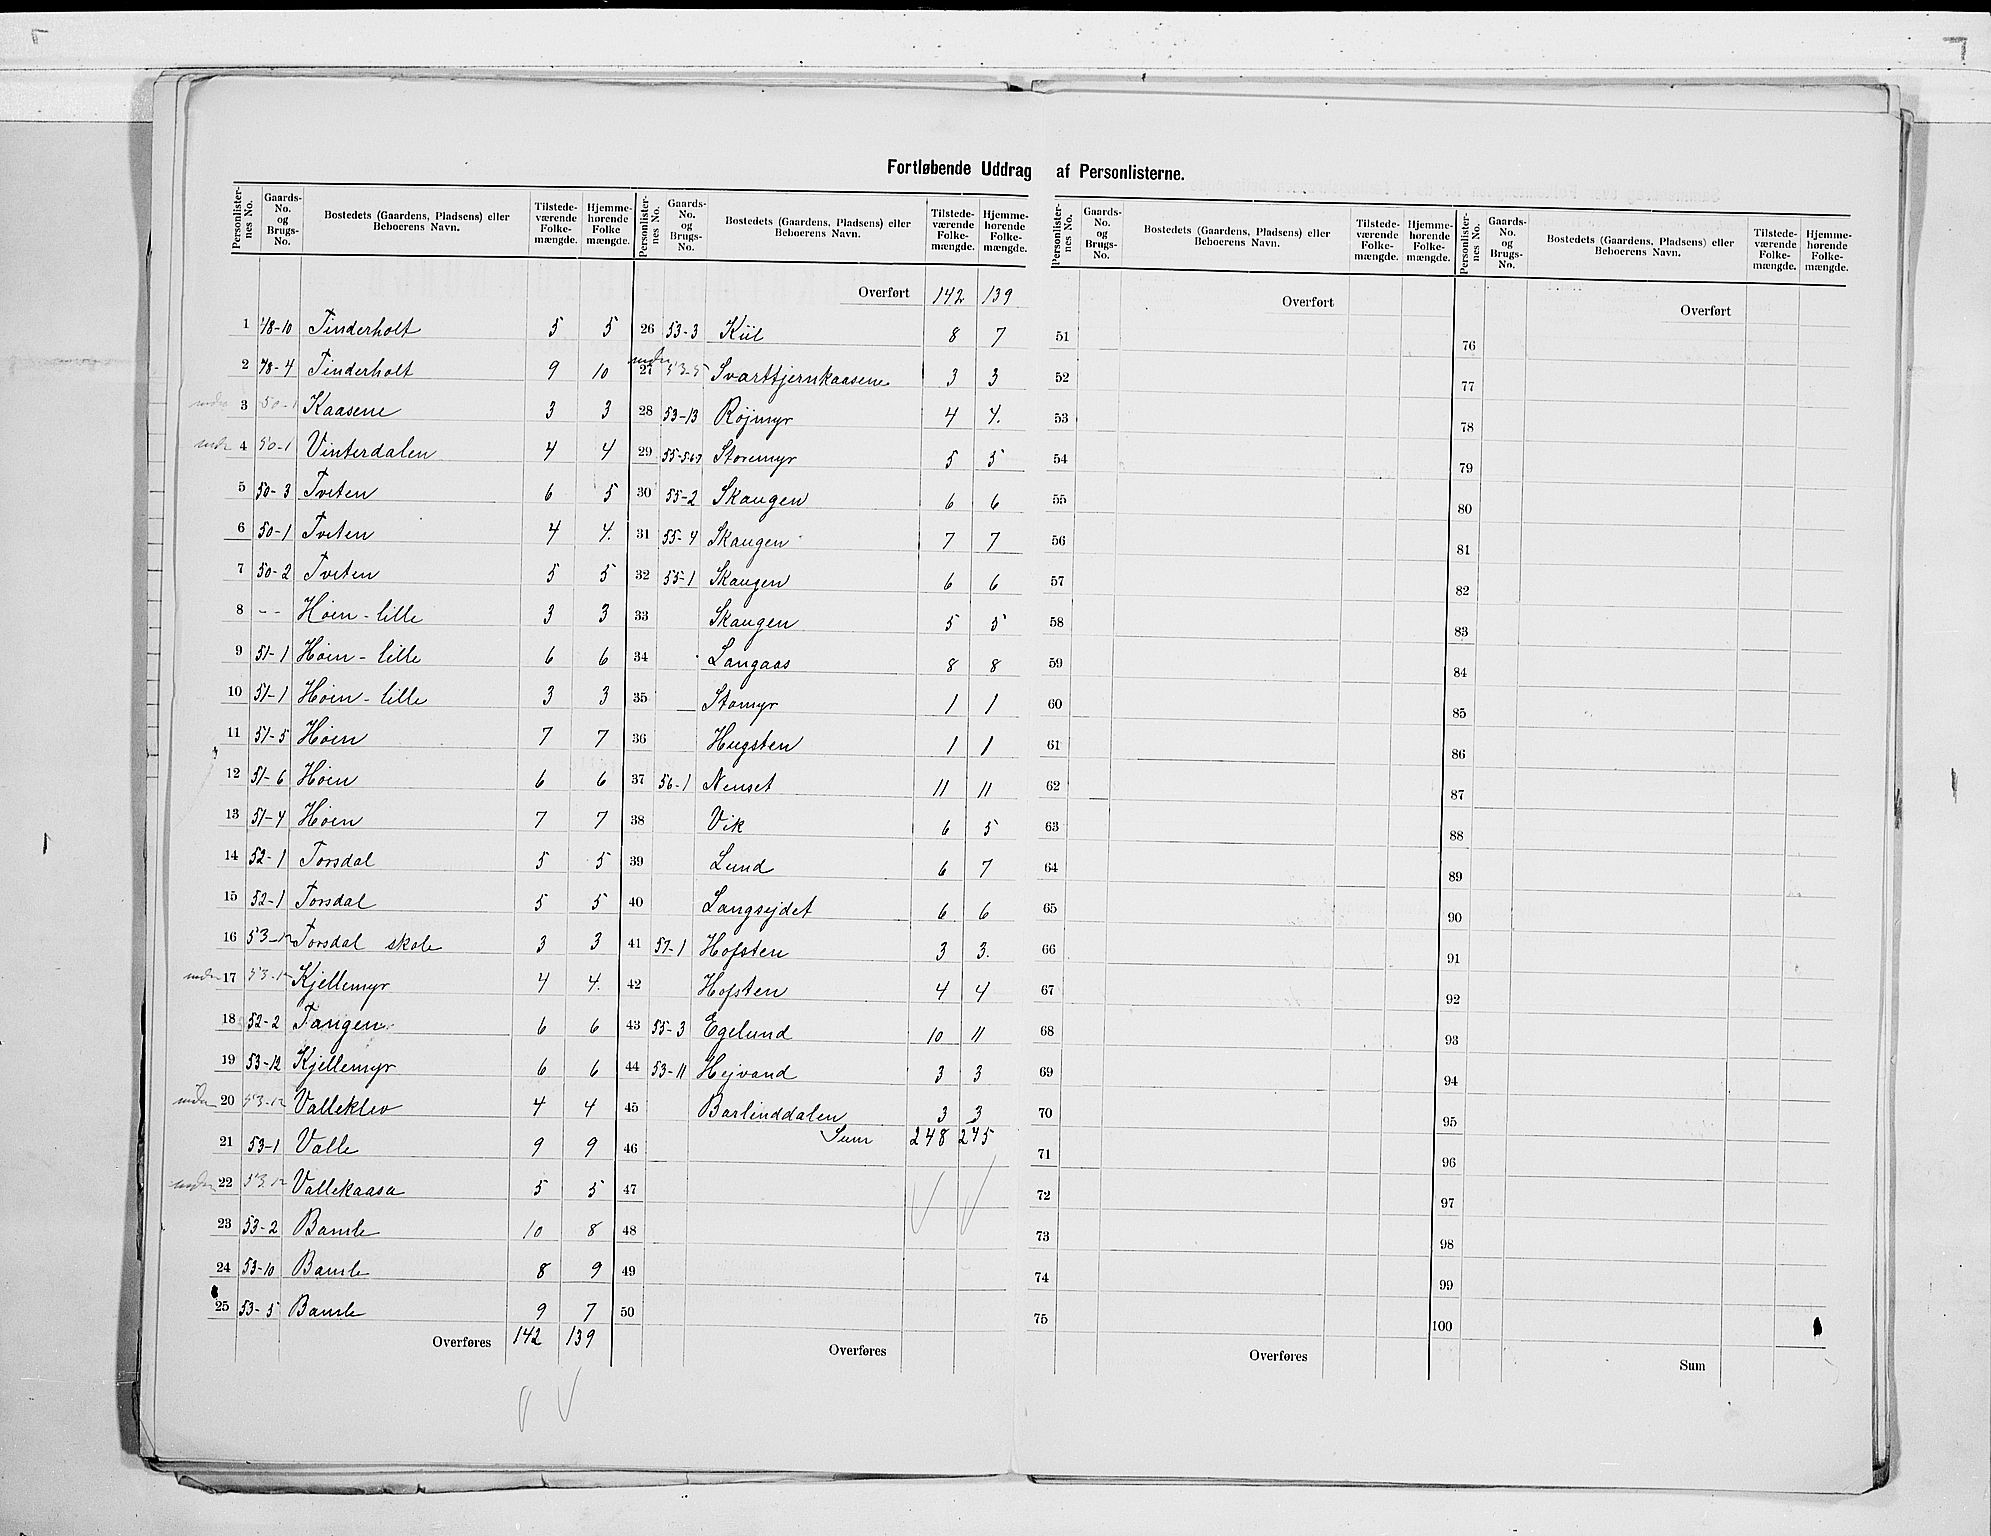 Fortløbende Uddrag af Personlisterne.
Personlisternes No. | Gaards-No. og Brugs-No. | Bostedets (Gaardens, Pladsens) eller Beboerens Navn. | Tilstedeværende Folkemængde. | Hjemmehørende Folkemængde.
1 48-10 Tinderholt 5 5
2 48-4 Tinderholt 9 10
3 50-1 Kaasene 3 3
4 50-1 Vinterdalen 4 4
5 50-3 Tveten 6 5
6 50-1 Tveten 4 4.
7 50-2 Tveten 5 5
8 - - Høen-lille 3 3
9 51-1 Høen-lille 6 6
10 51-1 Høen-lille 3 3
11 51-5 Høen 7 7
12 51-6 Høen 6 6
13 51-4 Høen 7 7
14 52-1 Torsdal 5 5
15 52-1 Torsdal 5 5
16 53-12 Torsdal skole 3 3
under 17 53-12 Kjellemyr 4 4.
18 52-2 Tangen 6 6
19 53-12 Kjellemyr 6 6
under 20 53-12 Valleklev 4 4
21 53-1 Valle 9 9
under 22 53-12 Vallekaasa 5 5
23 53-2 Bamle 10 8
24 53-10 Bamle 8 9
25 53-5 Bamle 9 7
Overføres 142 139
Personlisternes No. | Gaards-No. og Brugs-No. | Bostedets (Gaardens, Pladsens) eller Beboerens Navn. | Tilstedeværende Folkemængde. | Hjemmehørende Folkemængde.
Overført 142 139
26 53-3 Kiil 8 7
under 27 53-5 Svarttjernkaasene 3 3
28 53-13 Røjmyr 4 4.
29 Storemyr 5 5
30 55-2 Skaugen 6 6
31 55-4 Skaugen 7 7
32 55-1 Skaugen 6 6
33 Skaugen 5 5
34 Langaas 8 8
35 Stomyr 1 1
36 Hugsten 1 1
37 56-1 Nenset 11 11
38 Vik 6 5
39 Lund 6 7
40 Langsejdet 6 6
41 57-1 Hofsten 3 3.
42 Hofsten 4 4
43 55-3 Egelund 10 11
44 53-11 Hejvand 3 3
45 Barlinddalen 3 3
46 Sum 248 245
47
48
49
50
Overføres
Personlisternes No. | Gaards-No. og Brugs-No. | Bostedets (Gaardens, Pladsens) eller Beboerens Navn. | Tilstedeværende Folkemængde. | Hjemmehørende Folkemængde.
Overført
51
52
53
54
55
56
57
58
59
60
61
62
63
64
65
66
67
68
69
70
71
72
73
74
75
Overføres
Personlisternes No. | Gaards-No. og Brugs-No. | Bostedets (Gaardens, Pladsens) eller Beboerens Navn. | Tilstedeværende Folkemængde. | Hjemmehørende Folkemængde.
Overført
76
77
78
79
80
81
82
83
84
85
86
87
88
89
90
91
92
93
94
95
96
97
98
99
100
Sum